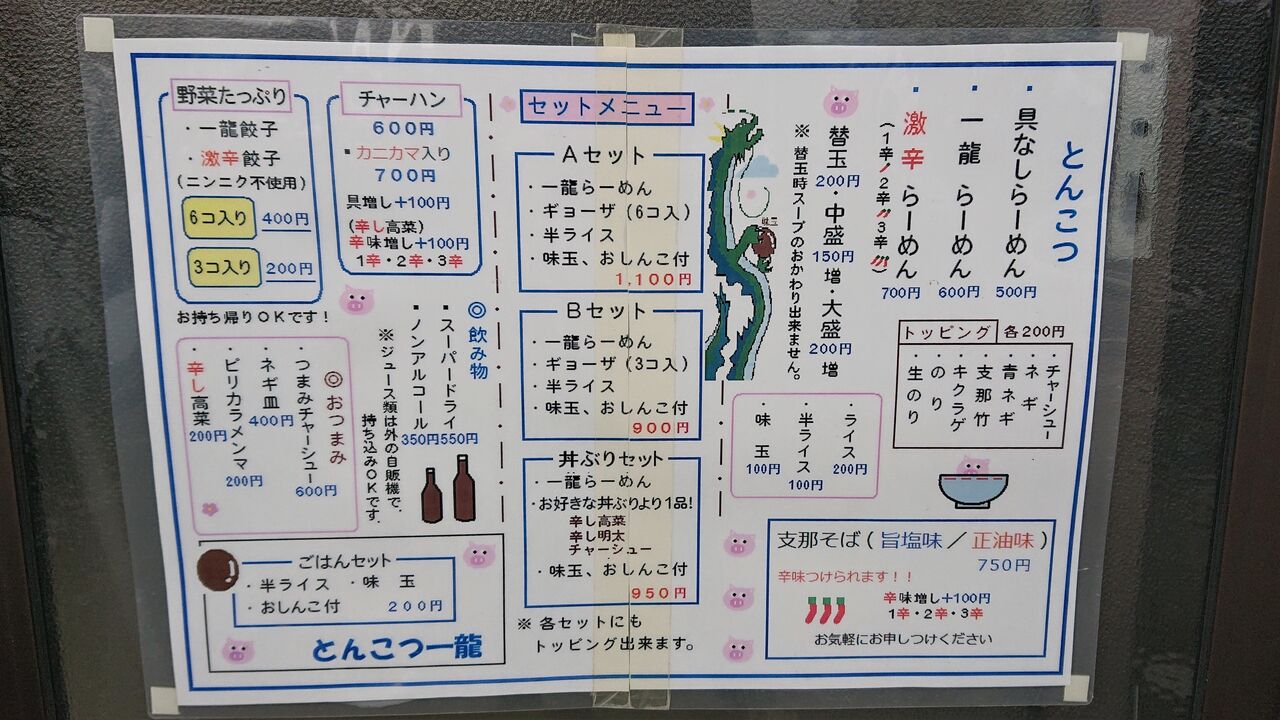 とんこつ
・具なしらーめん
500円
・一龍 らーめん
600円
・激辛 らーめん
(1辛/2辛〃3辛〃〃)
700円
替玉・中盛増・大盛増
200円
150円
200円
※ 替玉時スープのおかわり出来ません。
味玉
トッピング 各200円
・チャーシュー
・ネギ
・青ネギ
・支那竹
・キクラゲ
・のり
・生のり
・ライス
200円
・半ライス
100円
・味玉
100円
支那そば(旨塩味/正油味)
750円
辛味つけられます!!
辛味増し+100円
1辛・2辛・3辛
お気軽にお申しつけください
セットメニュー
Aセット
・一龍らーめん
・ギョーザ(6コ入)
・半ライス
・味玉、おしんこ付
1,100円
Bセット
・一龍らーめん
・ギョーザ(3コ入)
・半ライス
・味玉、おしんこ付
900円
丼ぶりセット
・一龍らーめん
・お好きな丼ぶりより1品!
辛し高菜
辛し明太
チャーシュー
・味玉、おしんこ付
950円
※ 各セットにも
トッピング出来ます。
野菜たっぷり
・一龍餃子
・激辛餃子
(ニンニク不使用)
6コ入り 400円
3コ入り 200円
お持ち帰りOKです!
チャーハン
600円
▪カニカマ入り
700円
具増し+100円
(辛し高菜)
辛味増し+100円
1辛・2辛・3辛
◎飲み物
▪スーパードライ
550円
▪ノンアルコール
350円
※ジュース類は外の自販機で、
持ち込みOKです。
◎おつまみ
・つまみチャーシュー
600円
・ネギ皿
400円
・ピリカラメンマ
200円
・辛し高菜
200円
ごはんセット
・半ライス ・味 玉
・おしんこ付 200円
とんこつ一龍